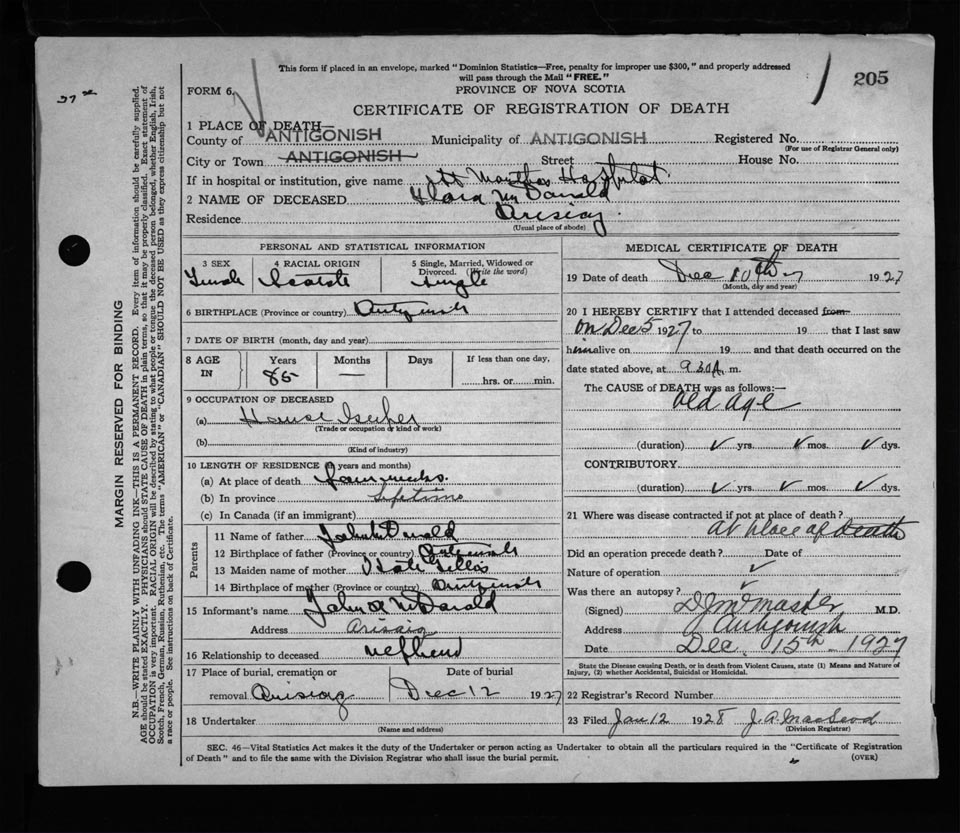 This form if placed in an envelope, marked "Dominion Statistics—Free, penalty for improper use $300," and properly addressed
will pass through the Mail "FREE."
205
27
FORM 6.
PROVINCE OF NOVA SCOTIA
CERTIFICATE OF REGISTRATION OF DEATH
1 PLACE OF DEATH—
County of ANTIGONISH Municipality of ANTIGONISH Registered No.
(For use of Registrar General only)
City or Town ANTIGONISH Street House No.
If in hospital or institution, give name St Marthas Hospital
2 NAME OF DECEASED Flora McDonald
Residence Arisaig
(Usual place of abode)
PERSONAL AND STATISTICAL INFORMATION
3 SEX 4 RACIAL ORIGIN 5 Single, Married, Widowed or Divorced. (Write the word)
Female Scotch Single
6 BIRTHPLACE (Province or country) Antigonish
7 DATE OF BIRTH (month, day and year)
8 AGE IN Years Months Days If less than one day,
85 — hrs. or min.
9 OCCUPATION OF DECEASED
(a) House Keeper
(Trade or occupation or kind of work)
(b)
(Kind of industry)
10 LENGTH OF RESIDENCE (in years and months)
(a) At place of death weeks
(b) In province Lifetime
(c) In Canada (if an immigrant)
Parents
11 Name of father John McDonald
12 Birthplace of father (Province or country) Antigonish
13 Maiden name of mother Gillis
14 Birthplace of mother (Province or country) Antigonish
15 Informant's name John A McDonald
Address Arisaig
16 Relationship to deceased nephew
17 Place of burial, cremation or removal Arisaig Date of burial Dec 12 1927
18 Undertaker
(Name and address)
MEDICAL CERTIFICATE OF DEATH
19 Date of death Dec 10th 1927
(Month, day and year)
20 I HEREBY CERTIFY that I attended deceased from
on Dec 5 1927 to 19 that I last saw
him alive on 19 and that death occurred on the
date stated above, at 9.30 A. m.
The CAUSE of DEATH was as follows:—
old age
(duration) ✓ yrs. ✓ mos. ✓ dys.
CONTRIBUTORY
(duration) ✓ yrs. ✓ mos. ✓ dys.
21 Where was disease contracted if not at place of death?
At place of Death
Did an operation precede death? Date of
Nature of operation ✓
Was there an autopsy? ✓
(Signed) M.D.
Address Antigonish
Date Dec. 15th 1927
State the Disease causing Death, or in death from Violent Causes, state (1) Means and Nature of
Injury, (2) whether Accidental, Suicidal or Homicidal.
22 Registrar's Record Number
23 Filed Jan 12 1928 J. A. MacLeod
(Division Registrar)
SEC. 46—Vital Statistics Act makes it the duty of the Undertaker or person acting as Undertaker to obtain all the particulars required in the "Certificate of Registration
of Death" and to file the same with the Division Registrar who shall issue the burial permit.
(OVER)
MARGIN RESERVED FOR BINDING
N.B.—WRITE PLAINLY WITH UNFADING INK—THIS IS A PERMANENT RECORD. Every item of information should be carefully supplied.
AGE should be stated EXACTLY. PHYSICIANS should STATE CAUSE OF DEATH in plain terms, so that it may be properly classified. Exact statement of
OCCUPATION is very important. RACIAL ORIGIN will be described by stating to what people or tongue the deceased person belonged, whether English, Irish,
Scotch, French, German, Russian, Ruthenian, etc. The terms "AMERICAN" or "CANADIAN" SHOULD NOT BE USED as they express citizenship but not
a race or people. See instructions on back of Certificate.